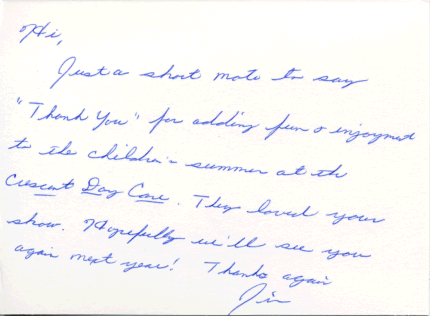 Hi,
Just a short note to say
"Thank You" for adding fun & enjoyment
to the children's summer at the
Crescent Day Care. They loved your
show. Hopefully we'll see you
again next year! Thanks again